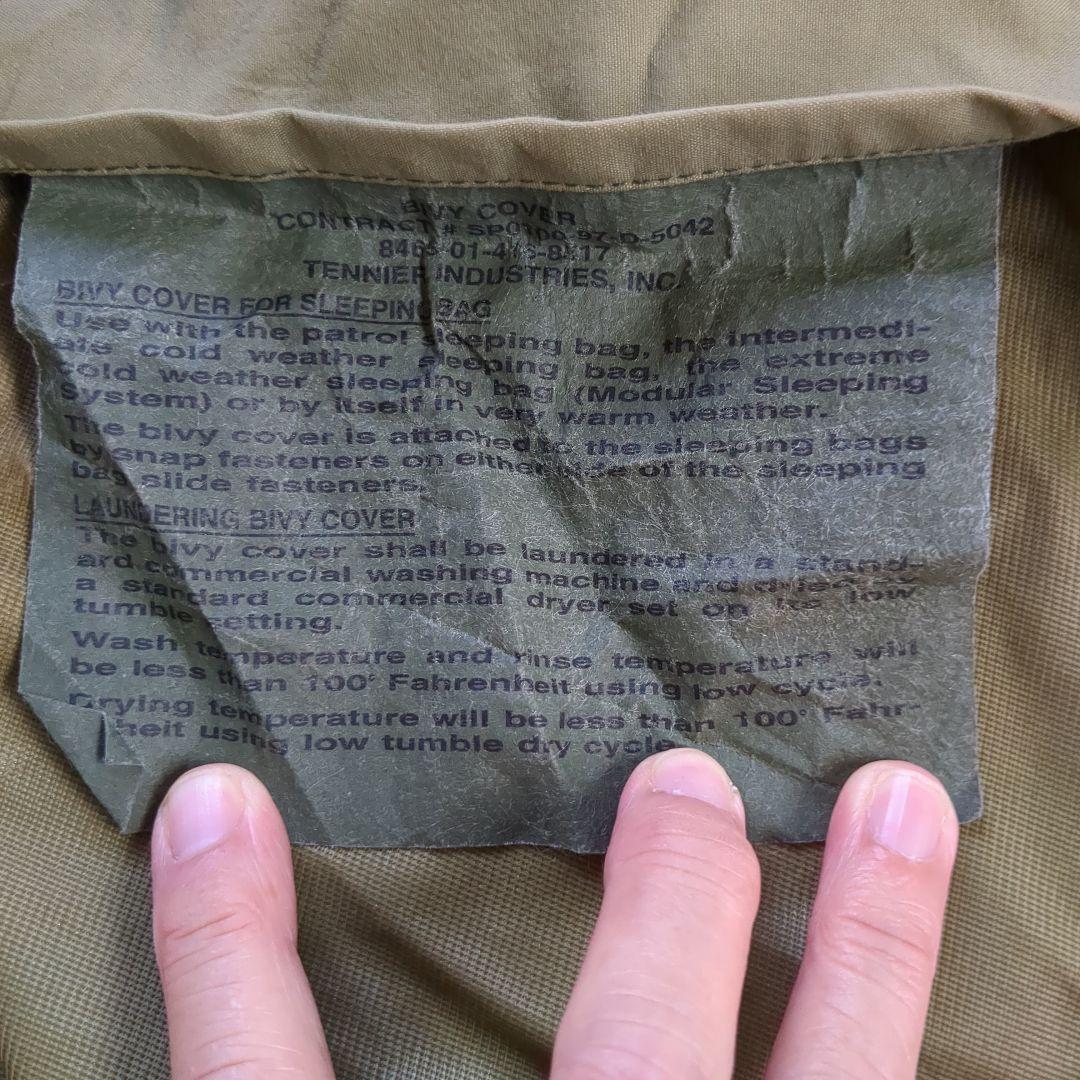 BIVY COVER
CONTRACT # SP0100-97-D-5042
TENNIER INDUSTRIES, INC.
BIVY COVER FOR SLEEPING BAG
Use with the patrol sleeping bag, the intermedi-
ate cold weather sleeping bag, the extreme
cold weather sleeping bag (Modular Sleeping
System) or by itself in very warm weather.
The bivy cover is attached to the sleeping bags
by snap fasteners on either side of the sleeping
bag slide fasteners.
LAUNDERING BIVY COVER
The bivy cover shall be laundered in a stand-
ard commercial washing machine and dried by
a standard commercial dryer set on its low
tumble setting.
Wash temperature and rinse temperature will
be less than 100° Fahrenheit using low cycle.
Drying temperature will be less than 100° Fahr-
heit using low tumble dry cycle.